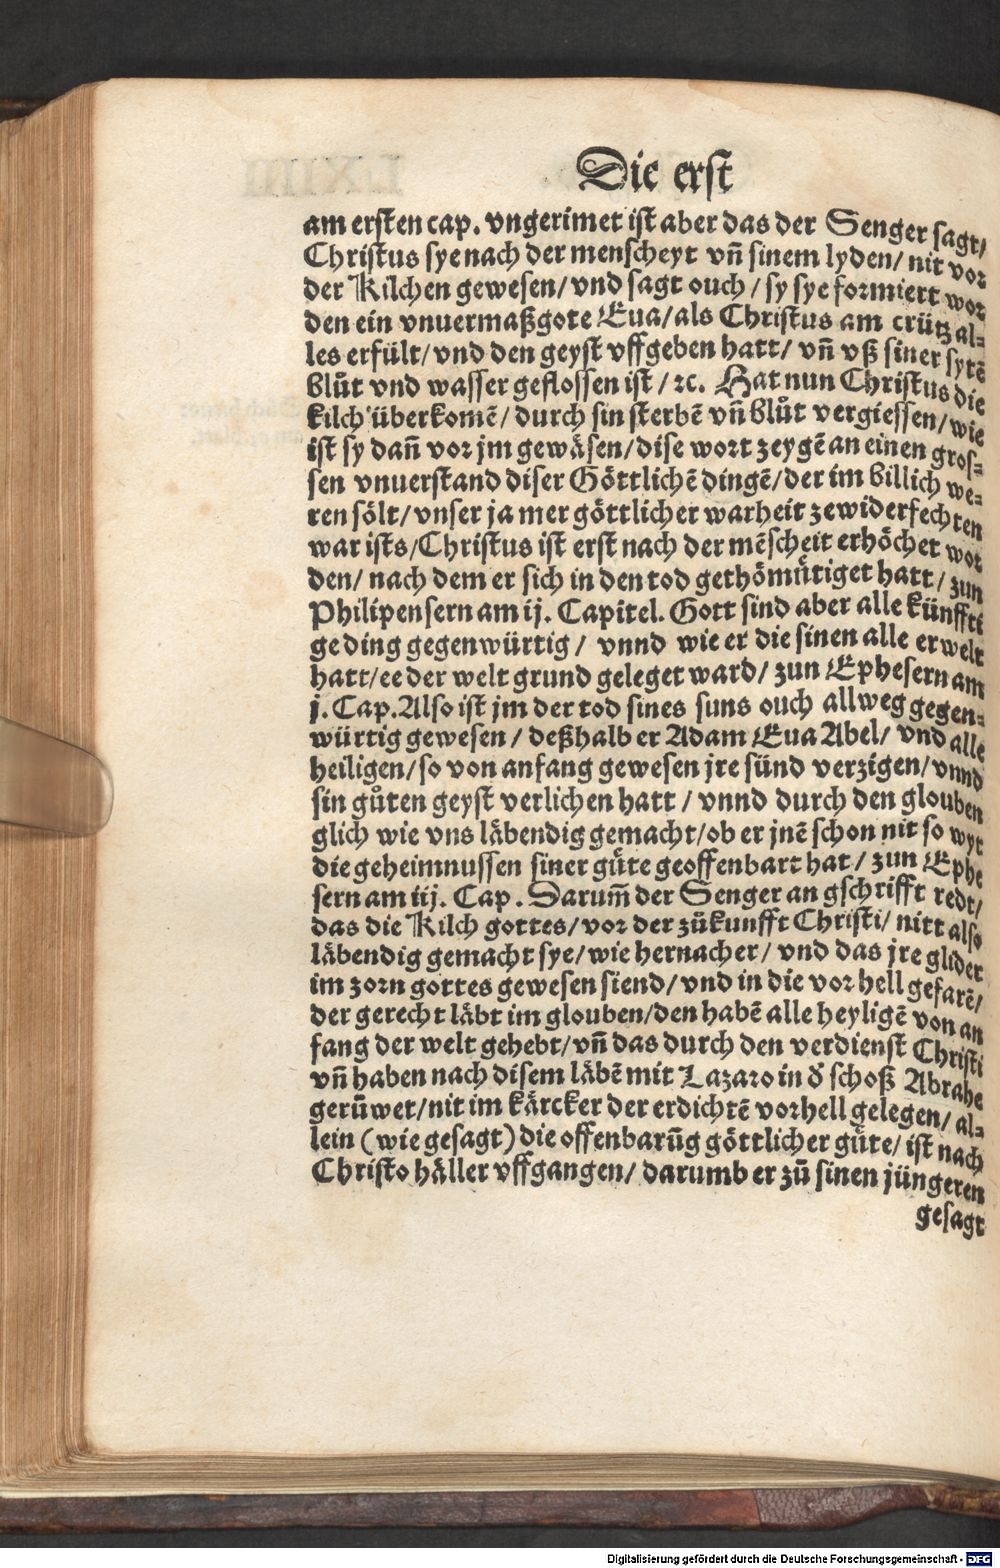 Die erst
am ersten cap. vngerimet ist aber das der Senger sagt/
Christus sye nach der menscheyt vñ sinem lyden/ nit vor
der Kilchen gewesen/ vnd sagt ouch / sy sye formiert wor
den ein vnuermaßgote Eua/ als Christus am crütz al⸗
les erfült/ vnd den geyst vffgeben hatt/ vñ vß siner sytẽ
blůt vnd wasser geflossen ist / ꝛc. Hat nun Christus die
kilch überkomẽ/ durch sin sterbẽ vñ blůt vergiessen/ wie
ist sy dañ vor jm gewäsen/ dise wort zeygẽ an einen gros⸗
sen vnuerstand diser Göttlichẽ dingẽ/ der im billich we⸗
ren sölt/ vnser ja mer göttlicher warheit zewiderfechten
war ists/ Christus ist erst nach der mẽscheit erhöchet wor
den/ nach dem er sich in den tod gethömütiget hatt/ zun
Philipensern am ij. Capitel. Gott sind aber alle künffti
ge ding gegenwürtig / vnnd wie er die sinen alle erwelt
hatt/ ee der welt grund geleget ward/ zun Ephesern am
j. Cap. Also ist jm der tod sines suns ouch allweg gegen⸗
würtig gewesen / deßhalb er Adam Eua Abel/ vnd alle
heiligen/ so von anfang gewesen jre sünd verzigen/ vnnd
sin gůten geyst verlichen hatt / vnnd durch den glouben
glich wie vns läbendig gemacht/ ob er jnẽ schon nit so wyt
die geheimnussen siner güte geoffenbart hat/ zun Ephe
sern am iij. Cap. Darum̃ der Senger an gschrifft redt/
das die Kilch gottes/ vor der zůkunfft Christi/ nitt also
läbendig gemacht sye/ wie hernacher/ vnd das jre glider
im zorn gottes gewesen siend/ vnd in die vorhell gefarẽ/
der gerecht läbt im glouben/ den habẽ alle heyligẽ von an
fang der welt gehebt/ vñ das durch den verdienst Christi
vñ haben nach disem läbẽ mit Lazaro in d̕ schoß Abrahe
gerůwet/ nit im kärcker der erdichtẽ vorhell gelegen/ al⸗
lein (wie gesagt) die offenbarũg göttlicher güte/ ist nach
Christo häller vffgangen/ darumb er zů sinen jüngeren
gesagt
Digitalisierung gefördert durch die Deutsche Forschungsgemeinschaft - DFG